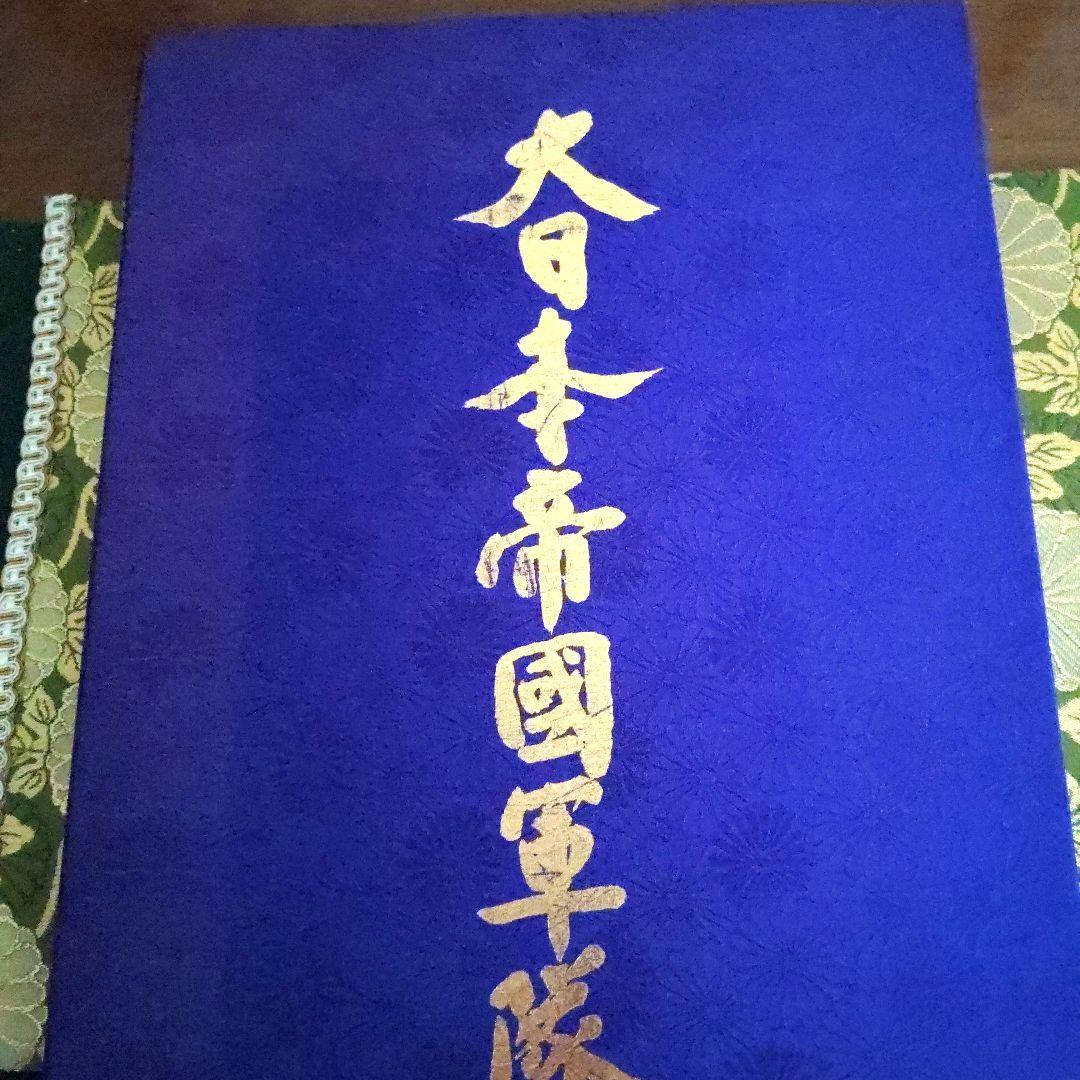 大日本帝國軍隊